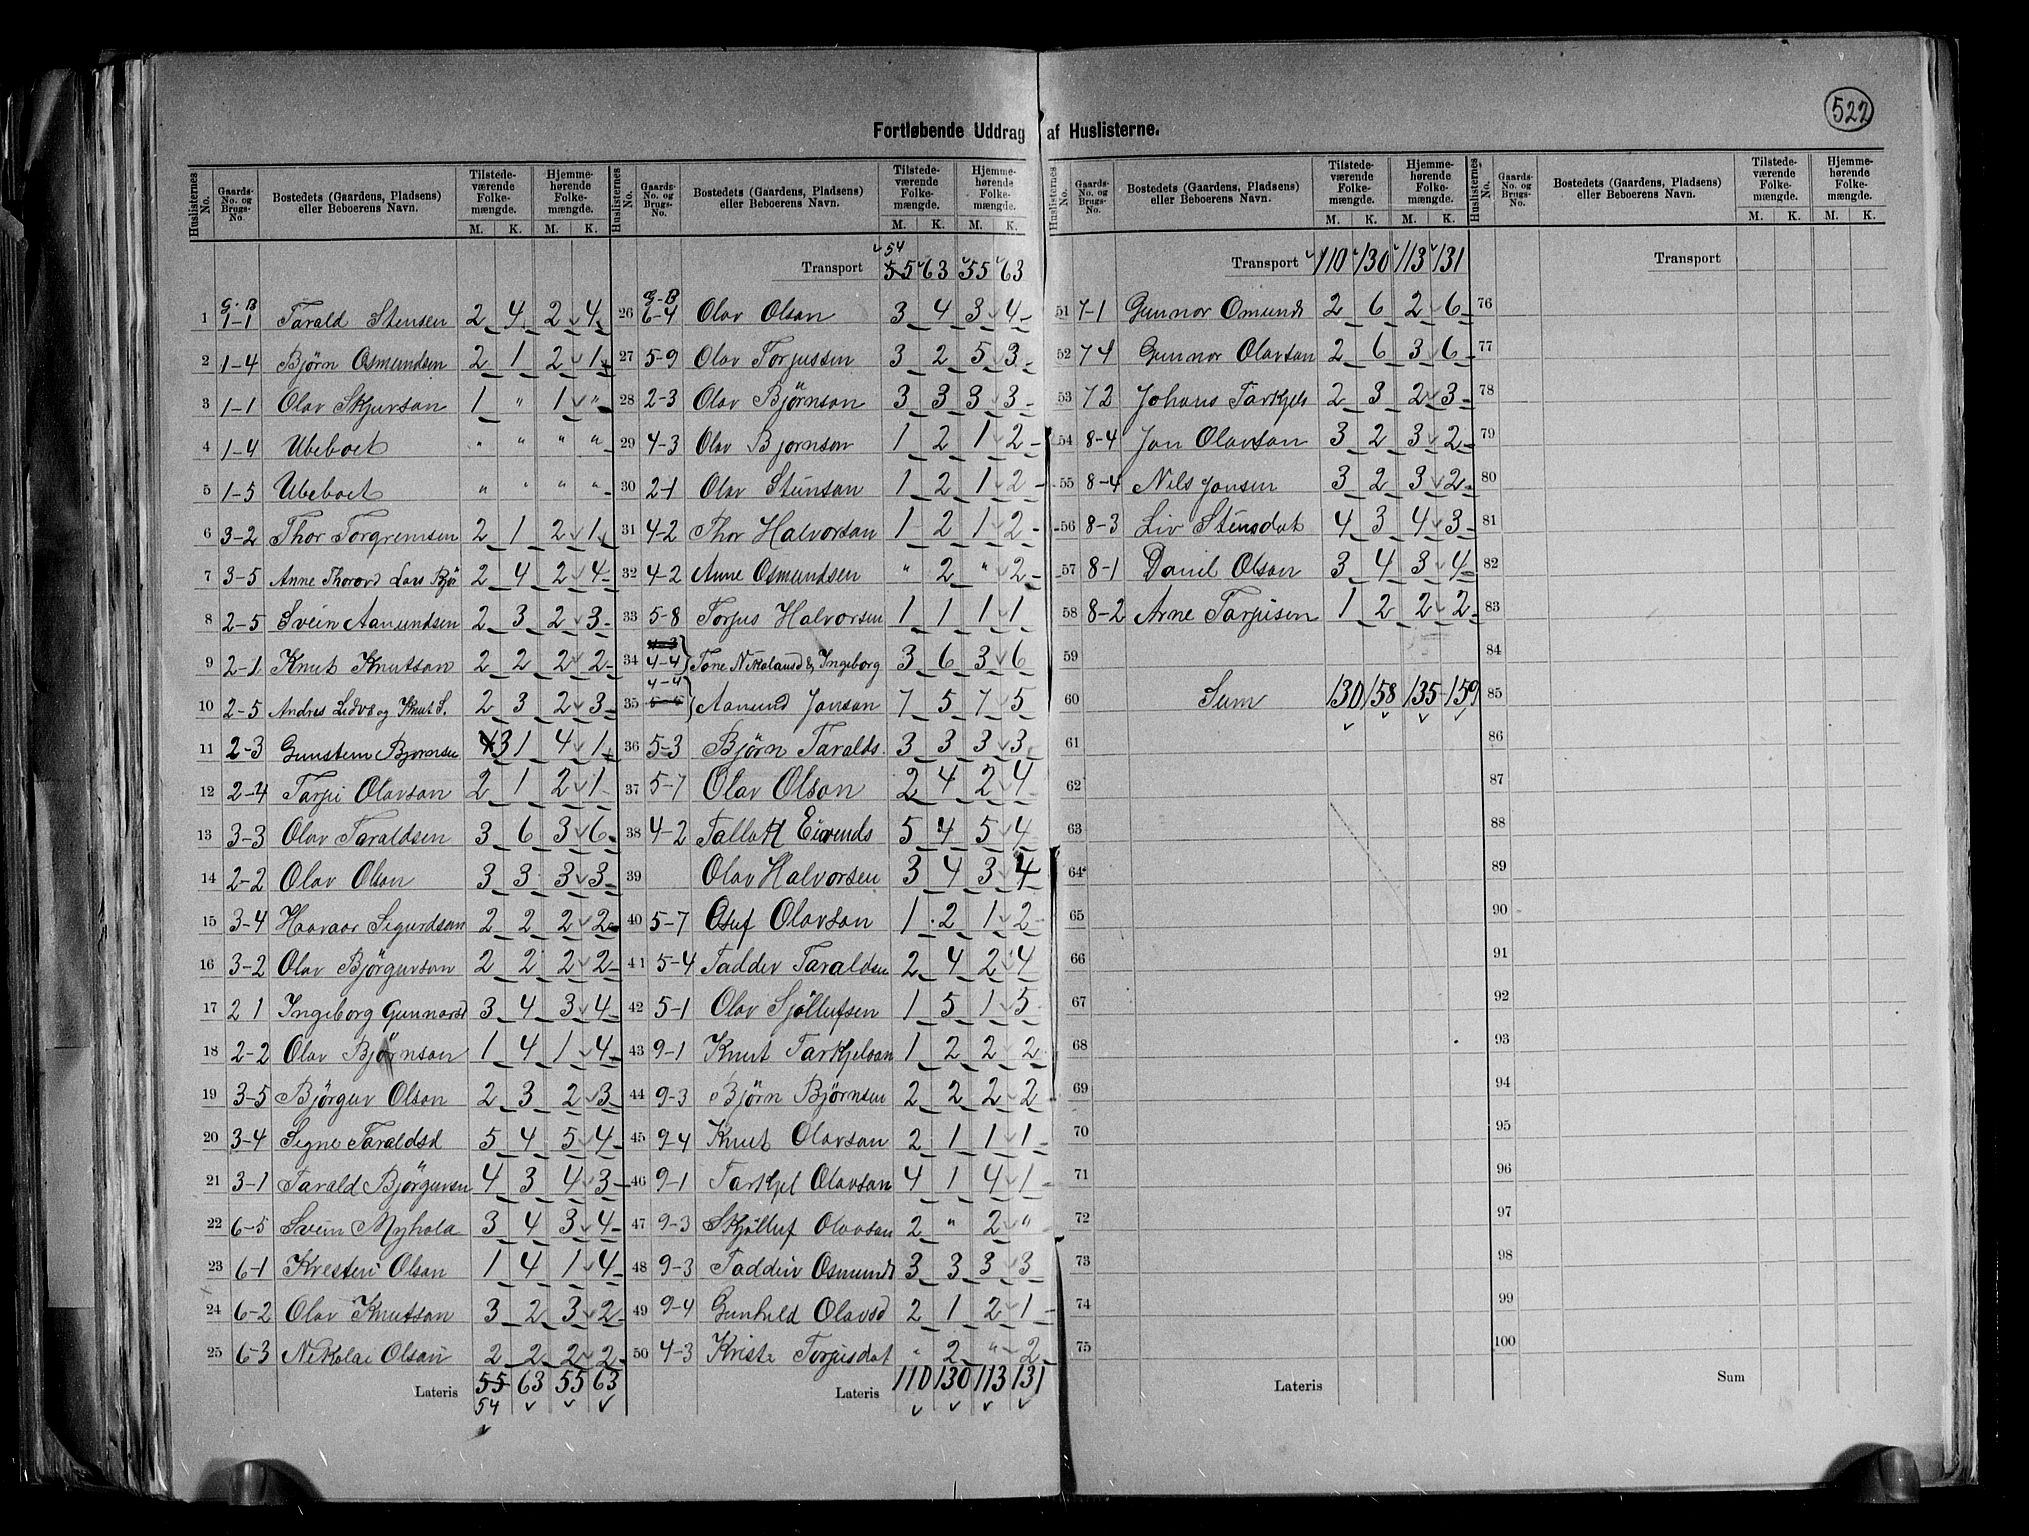 522
Fortløbende Uddrag af Huslisterne.
Huslisternes No. Gaards-No. og Brugs-No. Bostedets (Gaardens, Pladsens) eller Beboerens Navn. Tilstede-værende Folke-mængde. M. K. Hjemme-hørende Folke-mængde. M. K.
G-B
1 1-1 Tarald Stensen 2 4 2 4
2 1-4 Bjørn Osmundsen 2 1 2 1
3 1-1 Olav Skjerson 1 " 1 "
4 1-4 Ubeboet " " " "
5 1-5 Ubeboet " " " "
6 3-2 Thor Torgremsen 2 1 2 1
7 3-5 Anne Thorord Lars Bjø 2 4 2 4
8 2-5 Svein Aamundsen 2 3 2 3
9 2-1 Knut Knutson 2 2 2 2
10 2-5 Andres Ledvs og Knut S. 2 3 2 3
11 2-3 Gunstein Bjørnsen 3 1 4 1
12 2-4 Tarjei Olavson 2 1 2 1
13 3-3 Olav Taraldsen 3 6 3 6
14 2-2 Olav Olson 3 3 3 3
15 3-4 Haavaar Sigurdson 2 2 2 2
16 3-2 Olav Bjørguvson 2 2 2 2
17 2 1 Ingeborg Gunnarsd 3 4 3 4
18 2-2 Olav Bjørnson 1 4 1 4
19 3-5 Bjørguv Olson 2 3 2 3
20 3-4 Signe Taraldsd 5 4 5 4
21 3-1 Tarald Bjørguvsen 4 3 4 3
22 6-5 Svein Myhola 3 4 3 4
23 6-1 Kresten Olson 1 4 1 4
24 6-2 Olav Knutson 3 2 3 2
25 6-3 Nikolai Olson 2 2 2 2
Lateris 55 63 55 63
54
Huslisternes No. Gaards-No. og Brugs-No. Bostedets (Gaardens, Pladsens) eller Beboerens Navn. Tilstede-værende Folke-mængde. M. K. Hjemme-hørende Folke-mængde. M. K.
54
Transport 55 63 55 63
G-B
26 6-4 Olav Olson 3 4 3 4
27 5-9 Olav Torjussen 3 2 5 3
28 2-3 Olav Bjørnson 3 3 3 3
29 4-3 Olav Bjornson 1 2 1 2
30 2-1 Olav Steinson 1 2 1 2
31 4-2 Thor Halvorson 1 2 1 2
32 4-2 Anne Osmundsen " 2 " 2
33 5-8 Torjus Halvorsen 1 1 1 1
34 4-4 Tone Nikolausd & Ingeborg 3 6 3 6
4-4
35 Aamund Jonson 7 5 7 5
36 5-3 Bjørn Taralds. 3 3 3 3
37 5-7 Olav Olson 2 4 2 4
38 4-2 Tallak Eivends 5 4 5 4
39 Olav Halvorsen 3 4 3 4
40 5-7 Osuf Olavson 1 2 1 2
41 5-4 Taddev Taraldsen 2 4 2 4
42 5-1 Olav Sjøllufsen 1 5 1 5
43 9-1 Knut Tarkjelsan 1 2 2 2
44 9-3 Bjørn Bjørnsen 2 2 2 2
45 9-4 Knut Olavson 2 1 1 1
46 9-1 Tarkjel Olavson 4 1 4 1
47 9-3 Skjølluf Olavson 2 " 2 "
48 9-3 Taddeiv Osmunds 3 3 3 3
49 9-4 Gunhild Olavsd 2 1 2 1
50 4-3 Kriste Torjusdat " 2 " 2
Lateris 110 130 113 131
Huslisternes No. Gaards-No. og Brugs-No. Bostedets (Gaardens, Pladsens) eller Beboerens Navn. Tilstede-værende Folke-mængde. M. K. Hjemme-hørende Folke-mængde. M. K.
Transport 110 130 113 131
51 7-1 Gunnor Omunds 2 6 2 6
52 7 4 Gunnor Olavson 2 6 3 6
53 7 2 Johans Tarkjels 2 3 2 3
54 8-4 Jon Olavson 3 2 3 2
55 8-4 Nils Jonsen 3 2 3 2
56 8-3 Liv Steinsdat 4 3 4 3
57 8-1 Daniel Olson 3 4 3 4
58 8-2 Arne Tarjeisen 1 2 2 2
59
60 Sum 130 158 135 159
61
62
63
64
65
66
67
68
69
70
71
72
73
74
75
Lateris
Huslisternes No. Gaards-No. og Brugs-No. Bostedets (Gaardens, Pladsens) eller Beboerens Navn. Tilstede-værende Folke-mængde. M. K. Hjemme-hørende Folke-mængde. M. K.
Transport
76
77
78
79
80
81
82
83
84
85
86
87
88
89
90
91
92
93
94
95
96
97
98
99
100
Sum